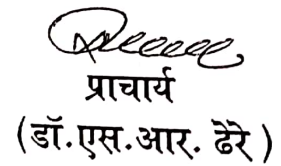 प्राचार्य
(डॉ.एस.आर. ढेरे )